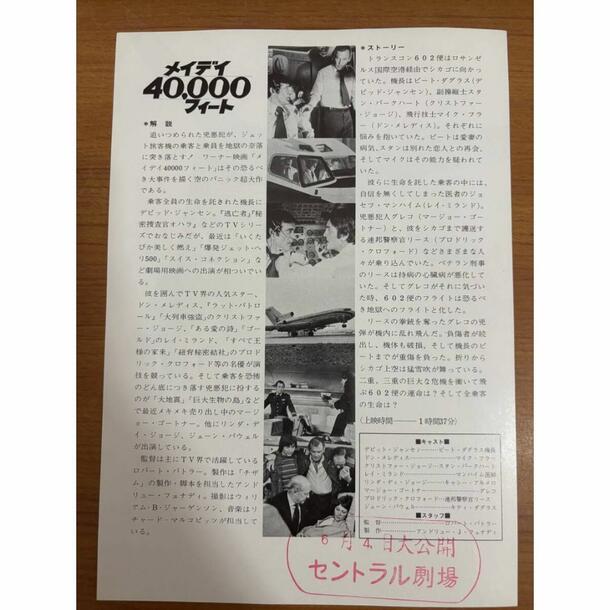 メイデイ
40,000
フィート
＊解 説
追いつめられた兇悪犯が、ジェッ
ト旅客機の乗客と乗員を地獄の奈落
に突き落とす！ ワーナー映画「メ
イデイ40000フィート」はその恐るべ
き大事件を描く空のパニック超大作
である。
乗客全員の生命を託された機長に
デビッド・ジャンセン。『逃亡者』『秘
密捜査官オハラ』などのTVシリ
ーズでおなじみだが、最近は「いくた
びか美しく燃え」「爆発ジェット・ヘ
リ500」「スイス・コネクション」な
ど劇場用映画への出演が相ついでい
る。
彼を囲んでTV界の人気スター、
ドン・メレディス、『ラット・パトロ
ール』「大列車強盗」のクリストファ
ー・ジョージ、「ある愛の詩」「ゴー
ルド」のレイ・ミランド、「すべて王
様の家来」「紐育秘密結社」のブロド
リック・クロフォード等の名優が演
技を競っている。そして乗客を恐怖
のどん底につき落す兇悪犯に扮する
のが「大地震」「巨大生物の島」など
で最近メキメキ売り出し中のマージ
ョー・ゴートナー。他にリンダ・デ
イ・ジョージ、ジェーン・パウェル
が出演している。
監督は主にTV界で活躍している
ロバート・バトラー。製作は「チザ
ム」の製作・脚本を担当したアンド
リュー・フェナディ。撮影はウィリ
アム・B・ジャーゲンソン、音楽はリ
チャード・マルコビッツが担当して
いる。
＊ストーリー
トランスコン602便はロサンゼ
ルス国際空港経由でシカゴに向かっ
ていた。機長はピート・ダグラス(デ
ビッド・ジャンセン)、副操縦士スタ
ン・バークハート(クリストファー
・ジョージ)、飛行技士マイク・フラ
ー(ドン・メレディス)。それぞれに
悩みを抱いていた。ピートは愛妻の
病気、スタンは別れた恋人との再会、
そしてマイクはその能力を疑われて
いた。
彼らに生命を託した乗客の中には、
自信を無くしてしまった医者のジョ
セフ・マンハイム(レイ・ミランド)。
兇悪犯人グレコ(マージョー・ゴー
トナー)と、彼をシカゴまで護送す
る連邦警察官リース(ブロドリック
・クロフォード)などさまざまな人
々が乗り込んでいた。ベテラン刑事
のリースは持病の心臓病が悪化して
いた。そしてグレコがそれに気づい
た時、602便のフライトは恐るべ
き地獄へのフライトと化した。
リースの拳銃を奪ったグレコの兇
弾が機内に乱れ飛んだ。負傷者が続
出し、機体も破損、そして機長のピ
ートまでが重傷を負った。折りから
シカゴ上空は猛雪吹が舞っている。
二重、三重の巨大な危機を衝いて飛
ぶ602便の運命は？そして全乗客
の生命は？
(上映時間――1時間37分)
■キャスト■
デビット・ジャンセン――ピート・ダグラス機長
ドン・メレディス――マイク・フラー
クリストファー・ジョージ―スタン・バークハート
レイ・ミランド――マンハイム医師
リンダ・デイ・ジョージ――キャシー・アルメロ
マージョー・ゴートナー――グレコ
ブロドリック・クロフォード―連邦警察官リース
ジェーン・パウエル――キティ・ダグラス
■スタッフ■
監督――ロバート・バトラー
製作――アンドリュー・J・フェナディ
6月4日大公開
セントラル劇場